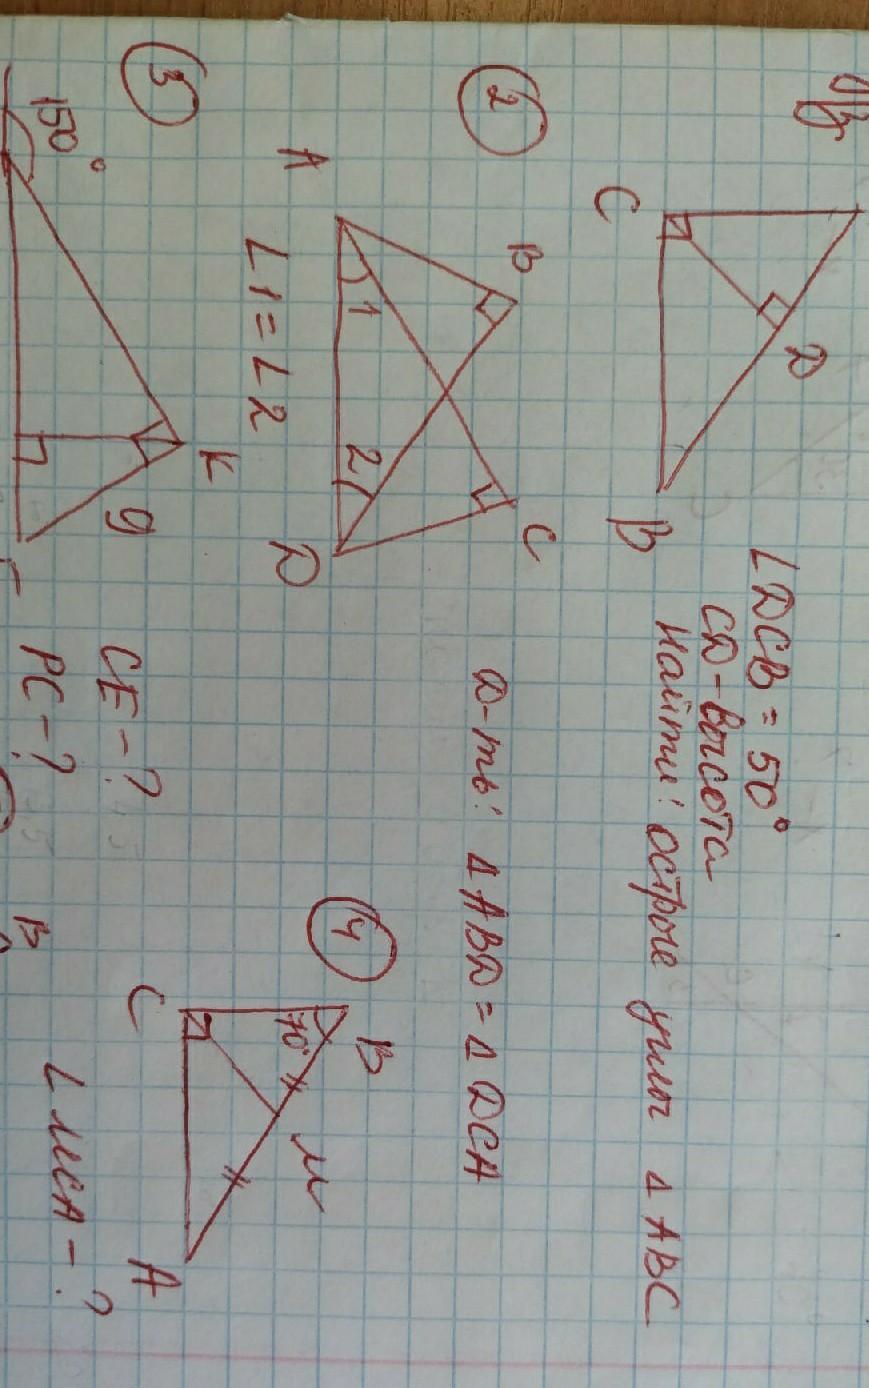 C
D
B
∠DCB = 50°
CD - высота
Найти: острые углы △ ABC
2
B
C
A
1
2
D
∠1 = ∠2
Д-ть: △ ABD = △ DCA
3
150°
K
9
CE - ?
PC - ?
4
B
70°
M
C
A
∠ MCA - ?
B